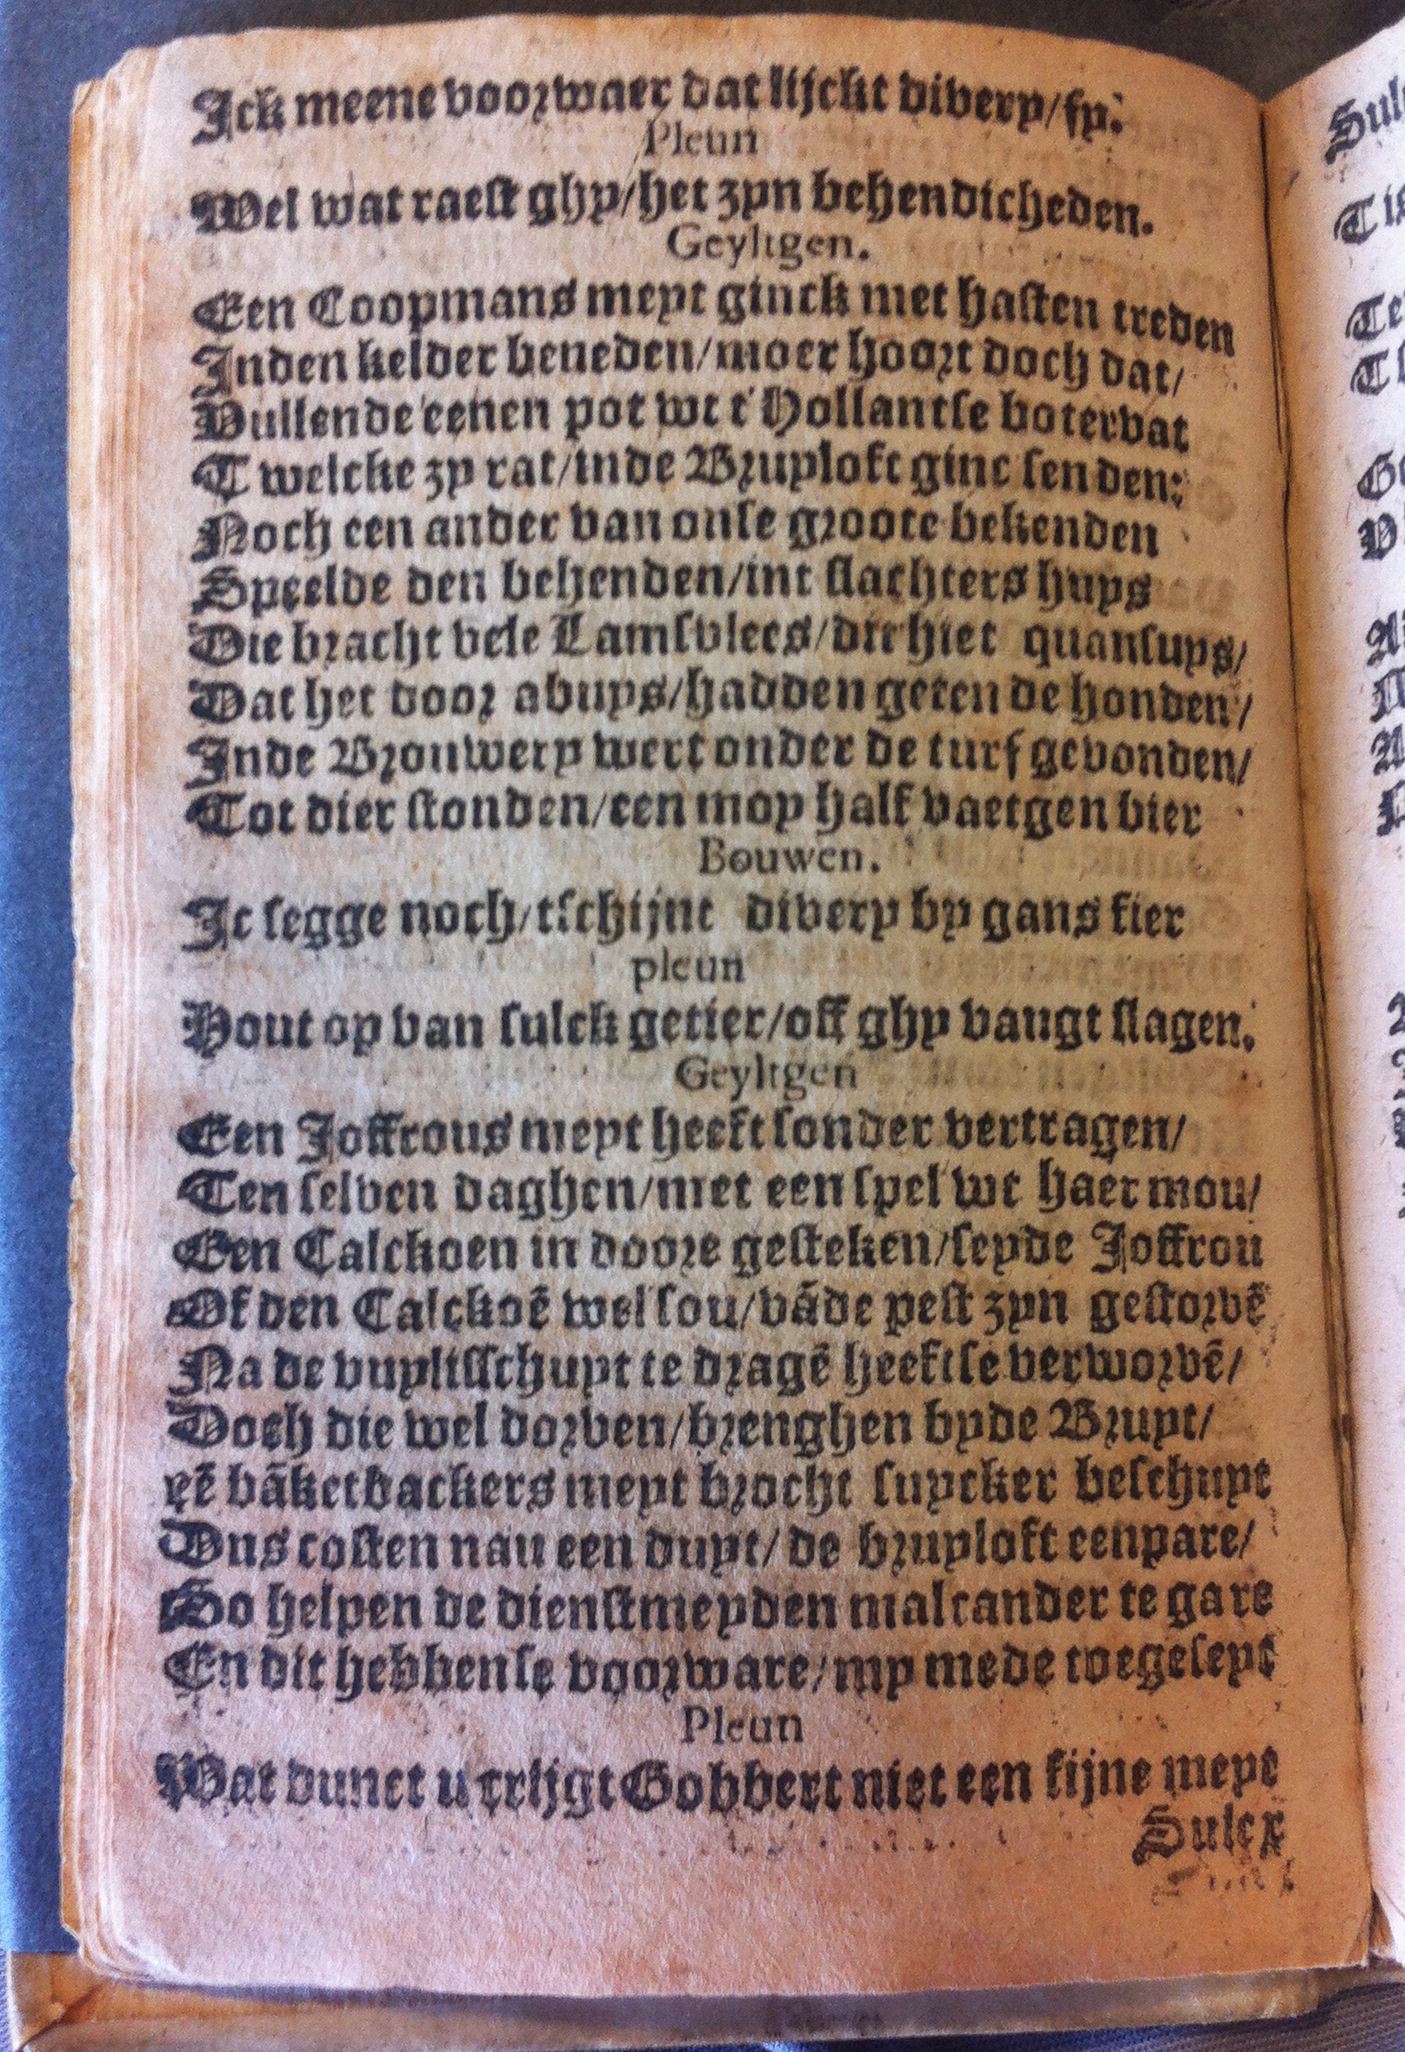 Ick meene voorwaer dat lijckt divery/fy.
Pleun
Wel wat raest ghy/het zyn behendicheden.
Geyltgen.
Een Coopmans meyt ginck met hasten treden
Inden kelder beneden/moer hoort doch dat/
Vullende eenen pot wt t'Hollantse botervat
T welcke zy rat/inde Bruyloft ginc senden:
Noch een ander van onse groote bekenden
Speelde den behenden/int slachters huys
Die bracht vele Lamsvlees/die hiet quansuys/
Dat het door abuys/hadden geten de honden/
Inde Brouwery wert onder de turf gevonden/
Tot dier stonden/een moy half vaetgen bier
Bouwen.
Ic segge noch/tschijnt divery by gans kier
pleun
Hout op van sulck getier/off ghy vangt slagen.
Geyltgen
Een Joffrous meyt heeft sonder vertragen/
Ten selven daghen/met een spel wt haer mou/
Een Calckoen in doore gesteken/seyde Joffrou
Of den Calckoē wel sou/vāde pest zyn gestorvē
Na de vuylisschuyt te dragē heeftse verworvē/
Doch die wel dorven/brenghen byde Bruyt/
eē bāketbackers meyt brocht suycker beschuyt
Dus costen nau een duyt/de bruyloft eenpare/
So helpen de dienstmeyden malcander te gare
En dit hebbense voorware/my mede toegeseyt
Pleun
Wat dunct u crijgt Gobbert niet een fijne meyt
Sulcx
Sul
Tis
Te